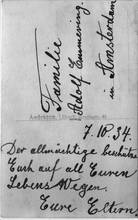 Familie
Adolf Emmering
in Amsterdam
7. IV. 34.
Der allmächtige beschütze
Euch auf all Euren
Lebens Wegen.
Eure Eltern